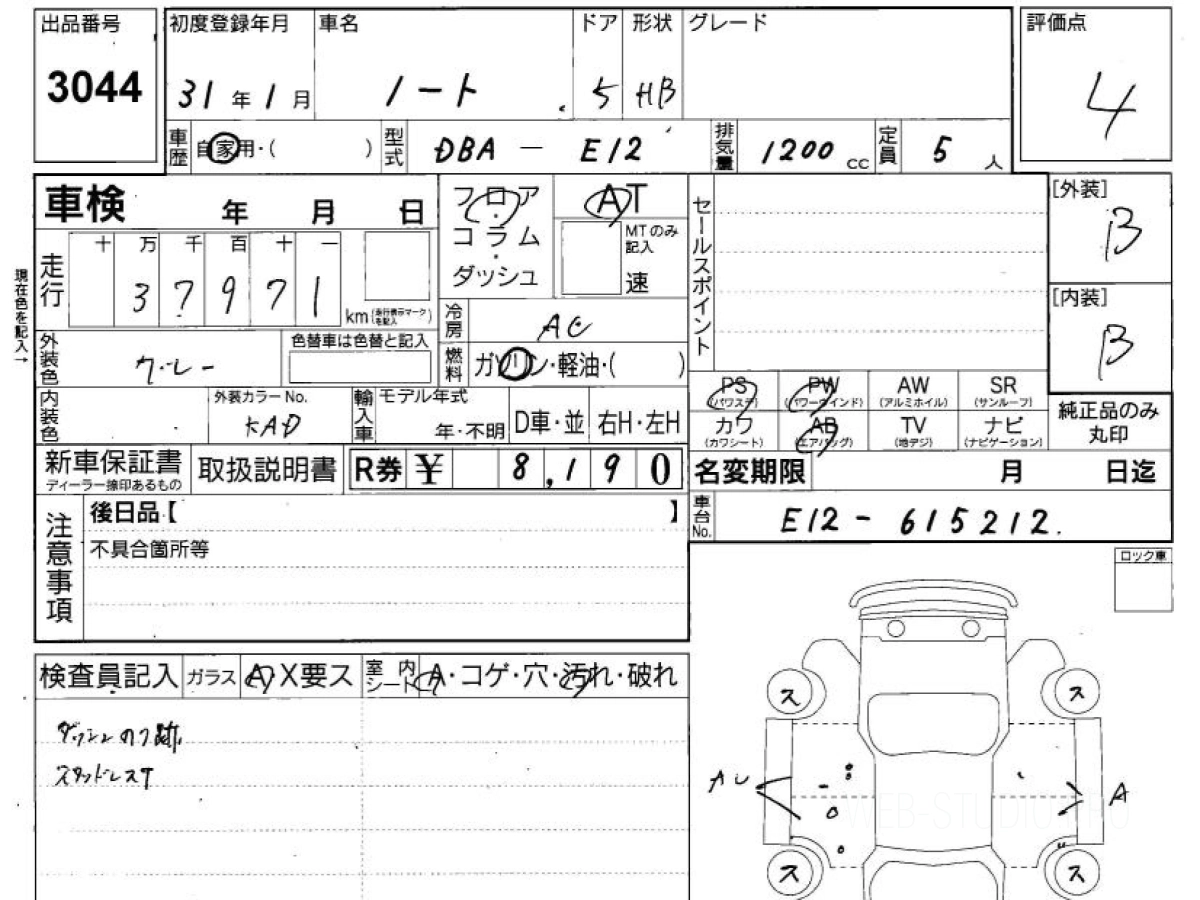 出品番号
3044
初度登録年月
31年1月
車名
ノート
ドア
5
形状
HB
グレード
評価点
4
車歴
自家用・( )
型式
DBA - E12
排気量
1200cc
定員
5人
車検 年 月 日
フロア
・
コラム
・
ダッシュ
AT
MTのみ
記入
速
セールスポイント
[外装]
B
[内装]
B
現在色を記入→
走行
十 万 千 百 十 一
3 7 9 7 1
km(走行表示マークを記入)
冷房
AC
燃料
ガソリン・軽油・( )
外装色
グレー
色替車は色替と記入
内装色
外装カラーNo.
KAD
輸入車
モデル年式
年・不明
D車・並
右H・左H
PS
(パワステ)
PW
(パワーウインド)
AW
(アルミホイル)
SR
(サンルーフ)
カワ
(カワシート)
AB
(エアバッグ)
TV
(地デジ)
ナビ
(ナビゲーション)
純正品のみ
丸印
新車保証書
ディーラー捺印あるもの
取扱説明書
R券 ¥ 8,190
名変期限 月 日迄
注意事項
後日品【 】
不具合箇所等
車台No.
E12-615212.
ロック車
検査員記入
ガラス
A・X要ス
室内
シート
A・コゲ・穴・汚れ・破れ
ダッシュのり跡
スタッドレスT
ス
ス
AU
A
WEB-STUDIO.PRO
ス
ス